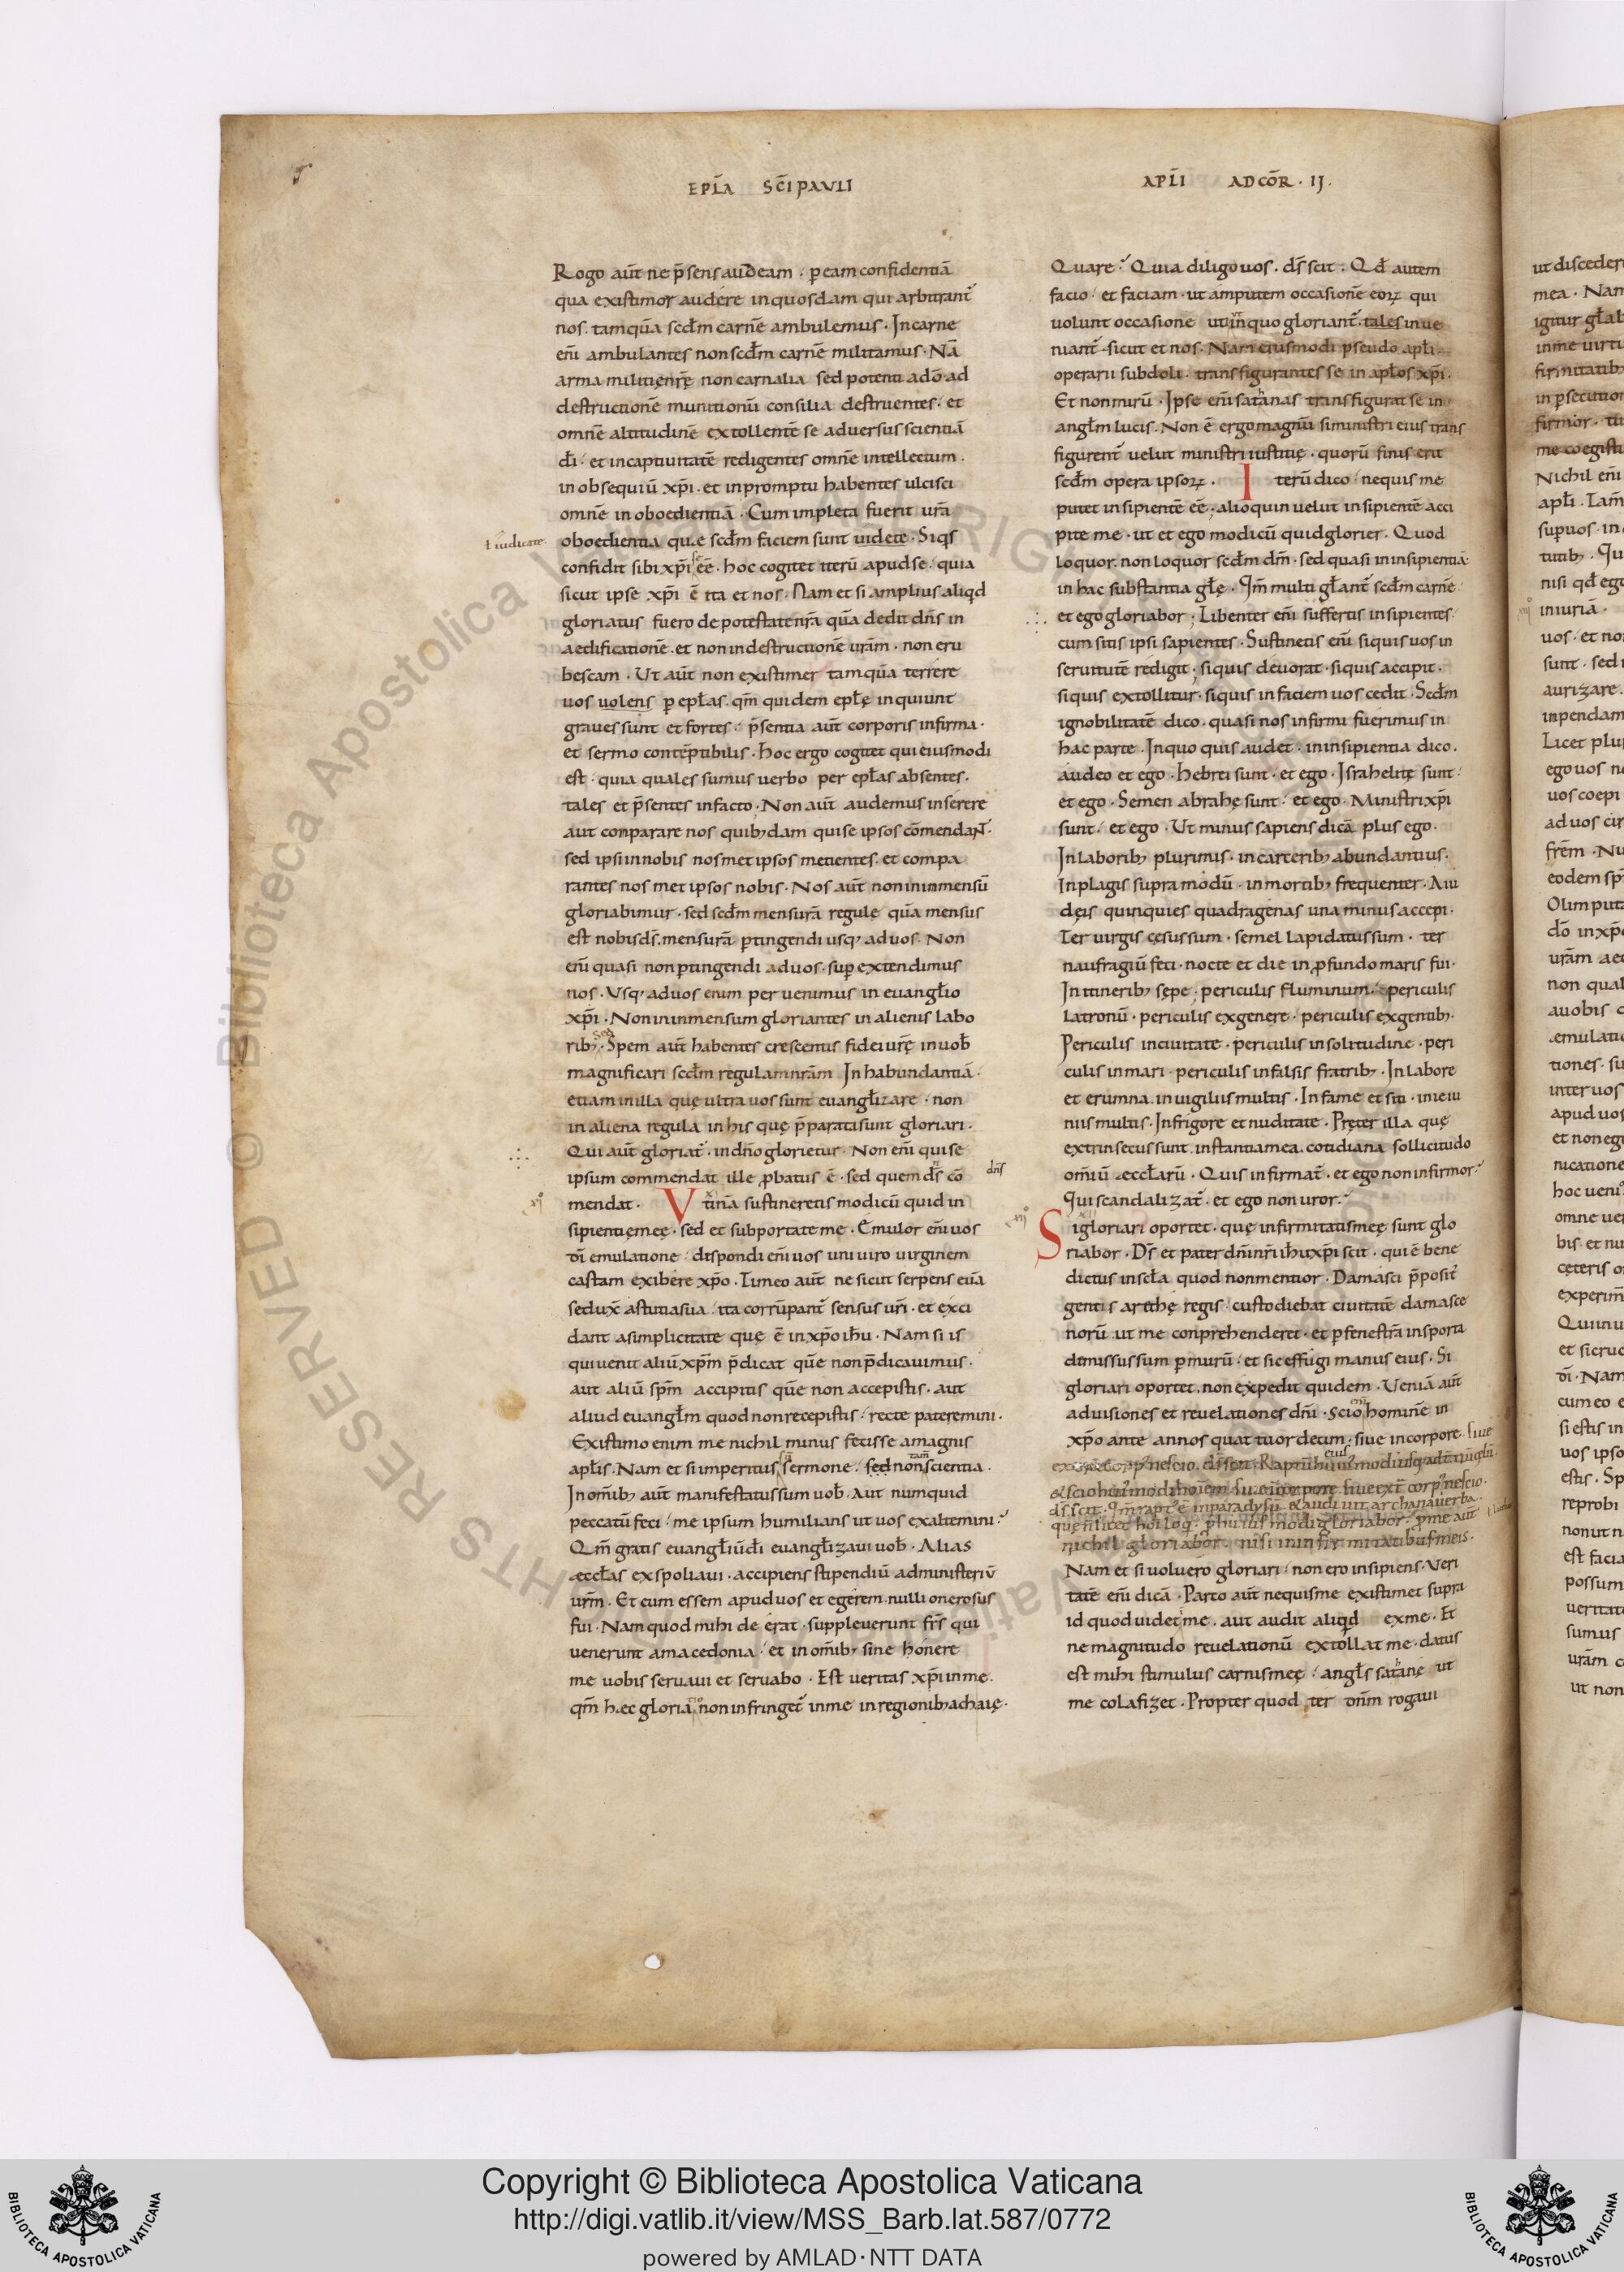 EPL̄A SC̄I PAVLI
APL̄I AD COR̄ · II ·
Rogo aūt ne p̄sens audeam · p eam confidentiā
qua existimor audere in quosdam qui arbitrant᷑
nos · tamquā scđm carnē ambulemus · In carne
eni ambulantes non scđm carnē militamus · Nā
arma militię nr̄ę non carnalia sed potentia dō ad
destructionē munitionū consilia destruentes · et
omnē altitudinē extollentē se adversus scientiā
dī · et in captivitatē redigentes omnē intellectum ·
in obsequiū xpī · et in promptu habentes ulcisci
omnē inoboedientiā · Cum impleta fuerit urā
ł iudicate
oboedientia quae scđm faciem sunt uidete · Siqs
confidit sibi xpī se eē · hoc cogitet iterū apud se · quia
sicut ipse xpī ē ita et nos · Nam et si amplius aliqd
gloriatus fuero de potestate nr̄a quā dedit dn̄s in
aedificationē · et non in destructionē urām · non eru
bescam · Ut aūt non existimer tamquā terrere
uos uolens p epłas · qm̄ quidem epłę inquiunt
graues sunt et fortes · p̄sentia aūt corporis infirma ·
et sermo contēptibilis · hoc ergo cogitet qui eiusmodi
est · quia quales sumus uerbo per epłas absentes ·
tales et p̄sentes in facto · Non aūt audemus inserere
aut conparare nos quibȝdam qui se ipsos cōmendant̄ ·
sed ipsi in nobis nosmet ipsos metientes · et compa
rantes nosmet ipsos nobis · Nos aūt non in inmensū
gloriabimur · sed scđm mensurā regulę quā mensus
est nobis ds̄ · mensurā ptingendi usq; ad uos · Non
eni quasi non ptingendi ad uos · sup extendimus
nos · Usq; ad uos enim peruenimus in euangłio
xpī · Non in inmensum gloriantes in alienis labo
ribȝ · Spem aūt habentes crescentis fidei urę̄ in uob̄
magnificari scđm regulam nrām In habundantiā ·
etiam in illa quę ultra uos sunt euangłizare · non
in aliena regula in his quę p̄parata sunt gloriari ·
Qui aūt gloriat᷑ · in dn̄o glorietur · Non eni qui se
ipsum commendat ille pbatus ē · sed quem ds̄ cō
dn̄s
mendat · Vtinā sustineretis modicū quid in
sipientię meę · sed et subportate me · Emulor eni uos
dī emulatione · dispondi eni uos uni uiro uirginem
castam exibere xpō · Timeo aūt ne sicut serpens euā
sedux̄ astutia sua · ita corrūpant᷑ sensus urī · et exci
dant a simplicitate quę ē in xpō ihū · Nam si is
qui uenit aliū xpm̄ p̄dicat quē non p̄dicauimus ·
aut aliū spm̄ accipitis quē non accepistis · aut
aliud euangłm quod non recepistis · recte pateremini ·
Existimo enim me nichil minus fecisse a magnis
apłis · Nam et si imperitus sermone · sed non scientia ·
In omībȝ aūt manifestatus sum uob̄ · Aut numquid
peccatū feci · me ipsum humilians ut uos exaltemini ·
Qm̄ gratis euangłiū dī euangłizaui uob̄ · Alias
æccłas expoliaui · accipiens stipendiū ad ministeriū
urm̄ · Et cum essem apud uos et egerem nulli onerosus
fui · Nam quod mihi deerat · suppleuerunt frs̄ qui
uenerunt a macedonia · et in omībȝ sine honere
me uobis seruaui et seruabo · Est ueritas xpī in me ·
qm̄ haec gloriā non infringet᷑ in me in regionibȝ achaię ·
Quare · Quia diligo uos · ds̄ scit · Qđ autem
facio · et faciam · ut amputem occasionē eorꝝ qui
uolunt occasione ut in quo gloriant᷑ · tales inue
niant᷑ sicut et nos · Nam eiusmodi pseudo apłi
operarii subdoli · transfigurantes se in apłos xpī ·
Et non mirū · Ipse eni satanas transfigurat se in
angłm lucis · Non ē ergo magnū si ministri eius trans
figurent᷑ uelut ministri iustitię · quorū finis erit
scđm opera ipsorꝝ · Iterū dico · nequis me
putet insipientē eē · alioquin uelut insipientē acci
pite me · ut et ego modicū quid glorier · Quod
loquor · non loquor scđm dm̄ · sed quasi in insipientiā
in hac substantia głę · Qm̄ multi głant᷑ scđm carnē
et ego gloriabor · Libenter eni suffertis insipientes
cum sitis ipsi sapientes · Sustinetis eni siquis uos in
seruitutē redigit · siquis deuorat · siquis accipit ·
siquis extollitur · siquis in faciem uos cedit · Scđm
ignobilitatē dico · quasi nos infirmi fuerimus in
hac parte · In quo quis audet · in insipientia dico ·
audeo et ego · hebrei sunt · et ego · Israhelitę sunt ·
et ego · Semen abrahę sunt · et ego · Ministri xpī
sunt · et ego · Ut minus sapiens dicā plus ego ·
In laboribȝ plurimis · in carceribȝ abundantius ·
In plagis supra modū · in mortibȝ frequenter · A iu
dęis quinquies quadragenas una minus accepi ·
Ter uirgis cęsus sum · semel lapidatus sum · ter
naufragiū feci · nocte et die in pfundo maris fui ·
In itineribȝ sępe · periculis fluminum · periculis
latronū · periculis ex genere · periculis ex gentibȝ ·
Periculis in ciuitate · periculis in solitudine · peri
culis in mari · periculis in falsis fratribȝ · In labore
et erumna · in uigiliis multis · In fame et siti · in ieiu
niis multis · In frigore et nuditate · Pręter illa quę
extrinsecus sunt · instantia mea · cotidiana sollicitudo
omīū æccłarū · Quis infirmat᷑ · et ego non infirmor ·
Qui scandalizat᷑ · et ego non uror ·
Si gloriari oportet · quę infirmitatis meę sunt glo
riabor · Ds̄ et pater dn̄i nrī ihū xpī scit · qui ē bene
dictus in scła quod non mentior · Damasci p̄posit᷑
gentis arethę regis · custodiebat ciuitatē damasce
norū ut me conprehenderet · et p fenestrā in sporta
dimissus sum p murū · et sic effugi manus eius · Si
gloriari oportet · non expedit quidem · Ueniā aūt
ad uisiones et reuelationes dn̄i · Scio hominē in
xpō ante annos quattuordecim · siue in corpore · siue
nescio · ds̄ scit · Raptū
ds̄ scit · Qm̄ rapt᷒ ē in paradysū & audiuit archana uerba
gloriabor · p me aūt
nichil gloriabor · nisi in infirmitatibus meis ·
Nam et si uoluero gloriari · non ero insipiens · Veri
tatē eni dicā · Parco aūt nequis me existimet supra
id quod uidet me · aut audit aliqd ex me · Et
ne magnitudo reuelationū extollat me · datus
est mihi stimulus carnis meę · angłs satanę ut
me colafizet · Propter quod ter dn̄m rogaui
Copyright © Biblioteca Apostolica Vaticana
http://digi.vatlib.it/view/MSS_Barb.lat.587/0772
powered by AMLAD·NTT DATA